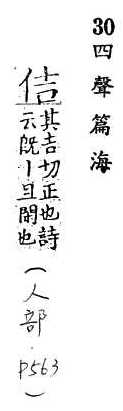 30四聲篇海
佶
其吉切正也詩
云既丨且閑也
(人部.p563)